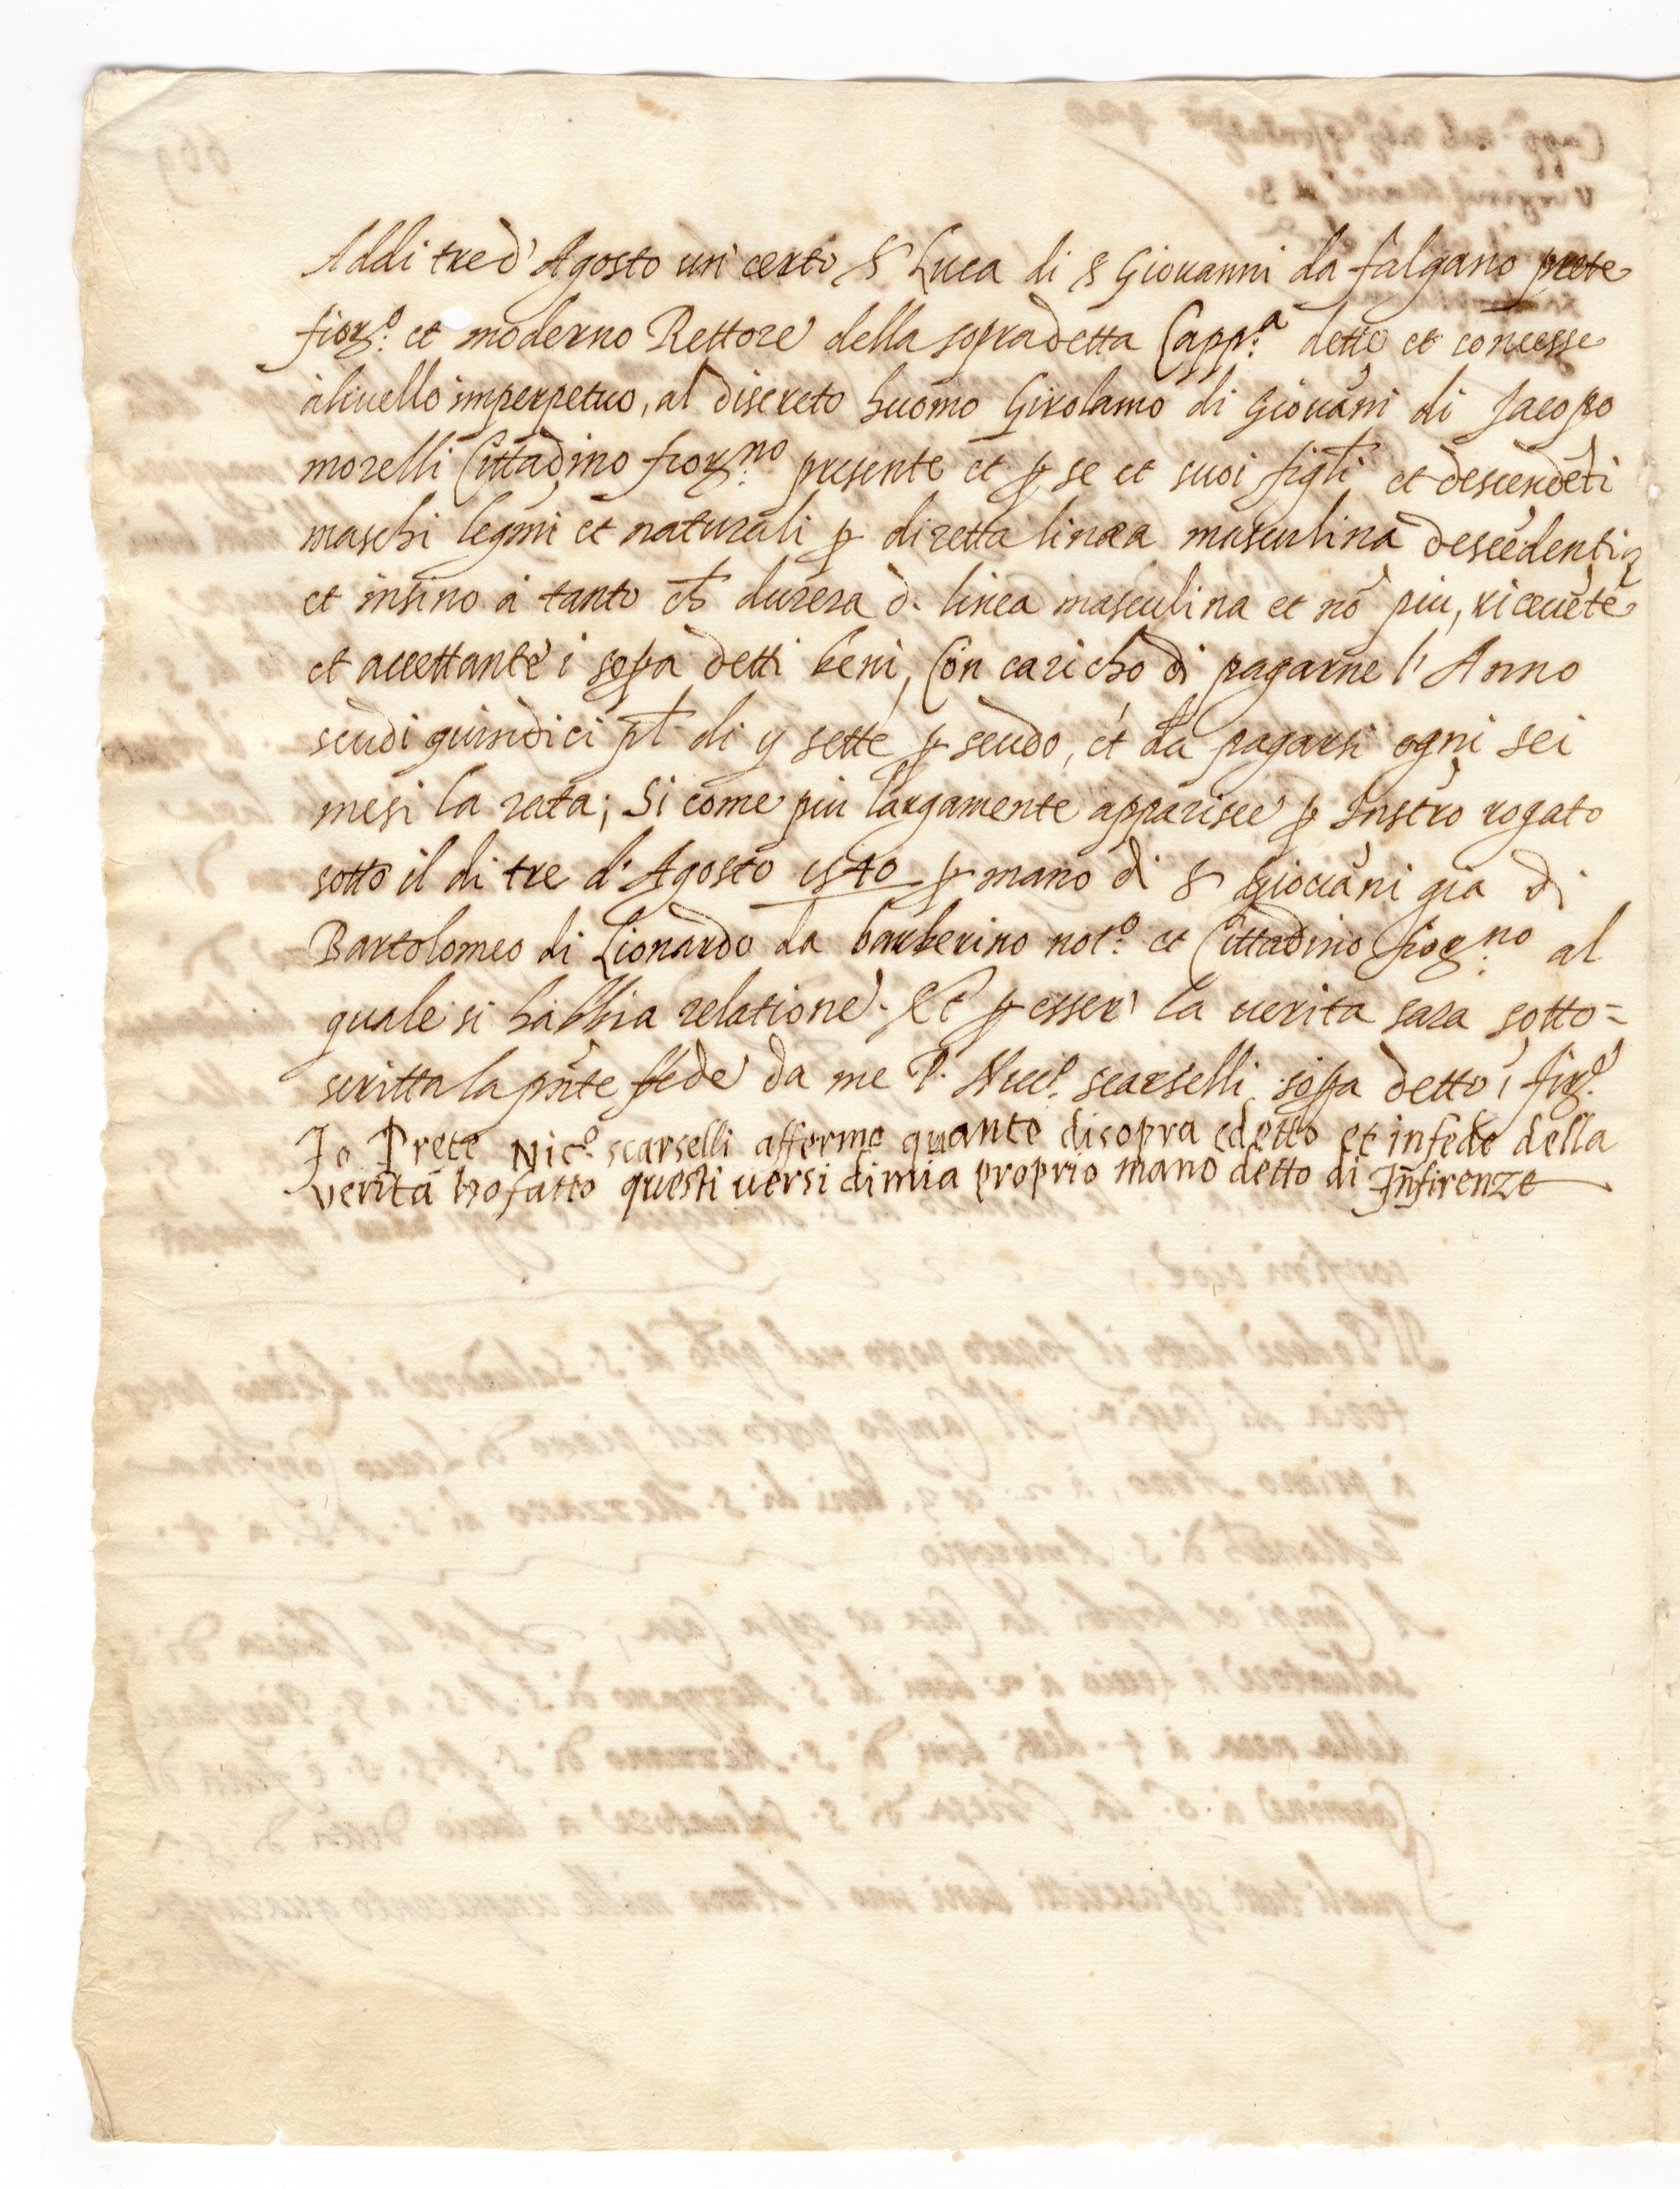 Addi tre d' Agosto un' certo S Luca di S Giovanni da falgano prete
fior.º et moderno Rettore della sopradetta Capp.ª dette et concesse
à livello imperpetuo, al discreto huomo Girolamo di Giovãni di Jacopo
morelli Cittadino fior.no presente et p se et suoi figli et descendẽti
maschi legmi et naturali p diretta linea masculina descẽdenti
et insino à tanto ch durera d. linea masculina et nõ piu, ricevẽte
et accettante i sopa detti beni, Con caricho di pagarne l' Anno
scudi quindici di sette p scudo, et da pagarsi ogni sei
mesi la rata; Si come piu largamente apparisce p Instro rogato
sotto il di tre d' Agosto 1540 p mano di S Giovãni gia di
Bartolomeo di Lionardo da barberino not.º et Cittadino fior.no al
quale si habbia relatione. Et p esser' la verita sara sotto=
scritta la pñte fede da me P. Nicc.º scarselli sopa detto, fior.º
Io Prete Nic.º scarselli affermo quanto disopra edetto et infede della
verita ho fatto questi versi dimia proprio mano detto di Infirenze